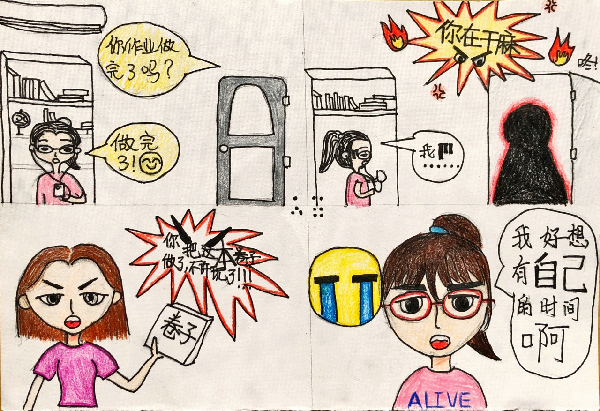 你作业做
完了吗?
做完
了!
你在干麻
咚!
我……
你把这本卷子
做了,不许玩了!!!
卷子
我好想
有自己
的时间
啊
ALIVE